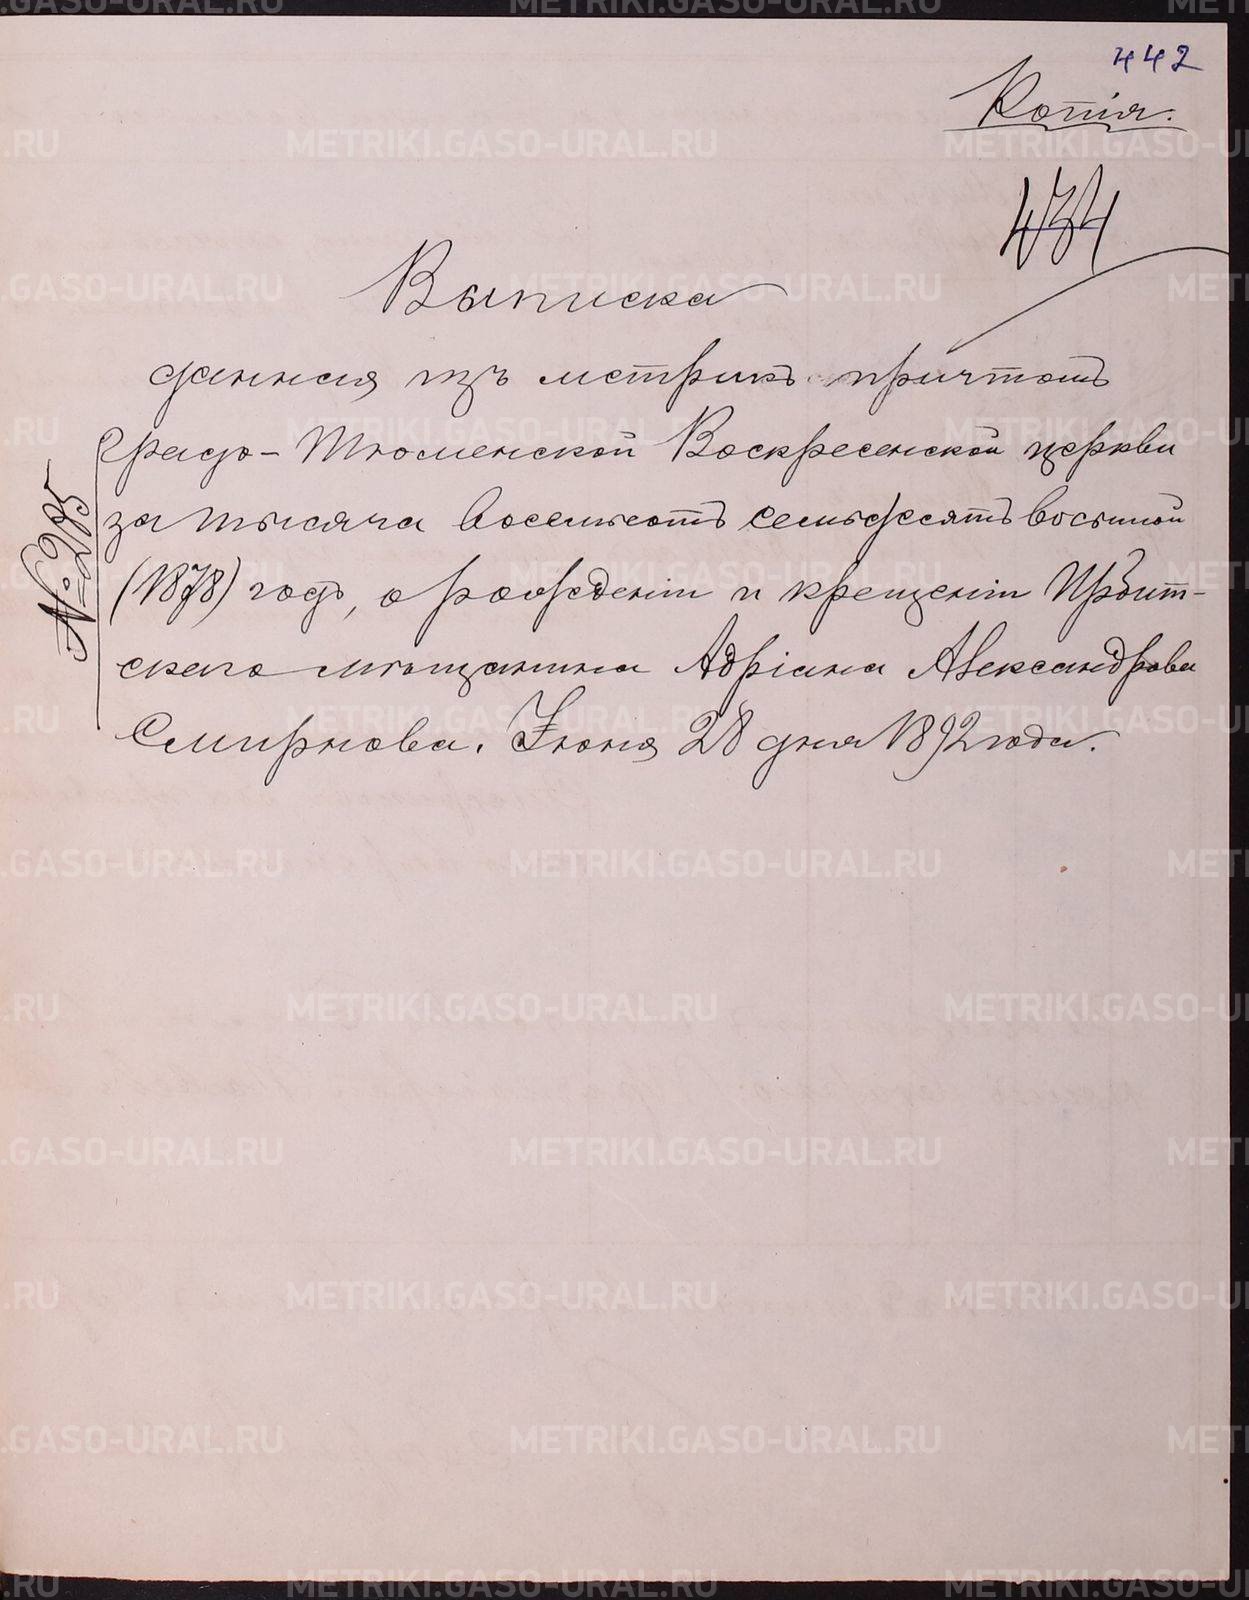 442
Копія.
434
Выписка
данная изъ метрикъ причтомъ
градо-Тюменской Воскресенской церкви
за тысяча восемьсотъ семьдесятъ восьмой
(1878) годъ, о рожденіи и крещеніи Ирбит-
скаго мѣщанина Адріана Александрова
Смирнова. Іюня 28 дня 1892 года.